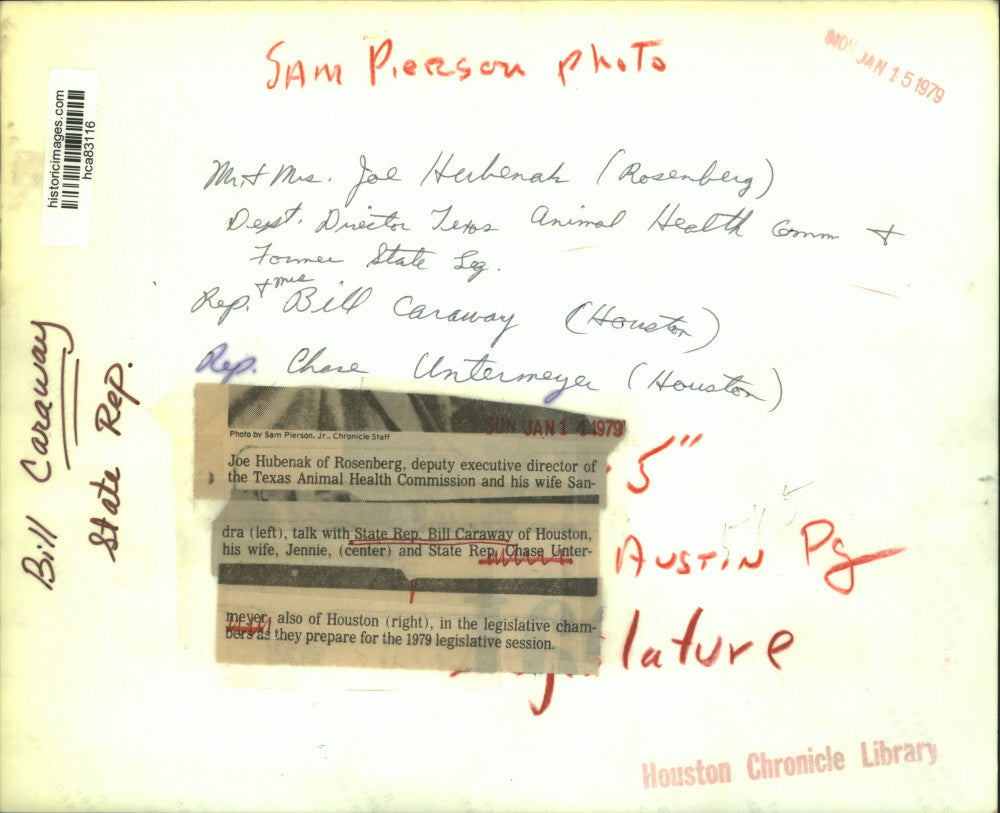 Sam Pierson photo
MON JAN 15 1979
historicimages.com
hca83116
Mr. + Mrs. Joe Hubenak (Rosenberg)
Dept. Director Texas Animal Health Comm +
Former State Leg.
Rep. + Mrs Bill Caraway (Houston)
Rep. Chase Untermeyer (Houston)
Bill Caraway
State Rep.
SUN JAN 14 1979
Photo by Sam Pierson, Jr., Chronicle Staff
Joe Hubenak of Rosenberg, deputy executive director of
the Texas Animal Health Commission and his wife San-
dra (left), talk with State Rep. Bill Caraway of Houston,
his wife, Jennie, (center) and State Rep. Chase Unter-
meyer, also of Houston (right), in the legislative cham-
bers as they prepare for the 1979 legislative session.
5"
Austin Pg
lature
Houston Chronicle Library